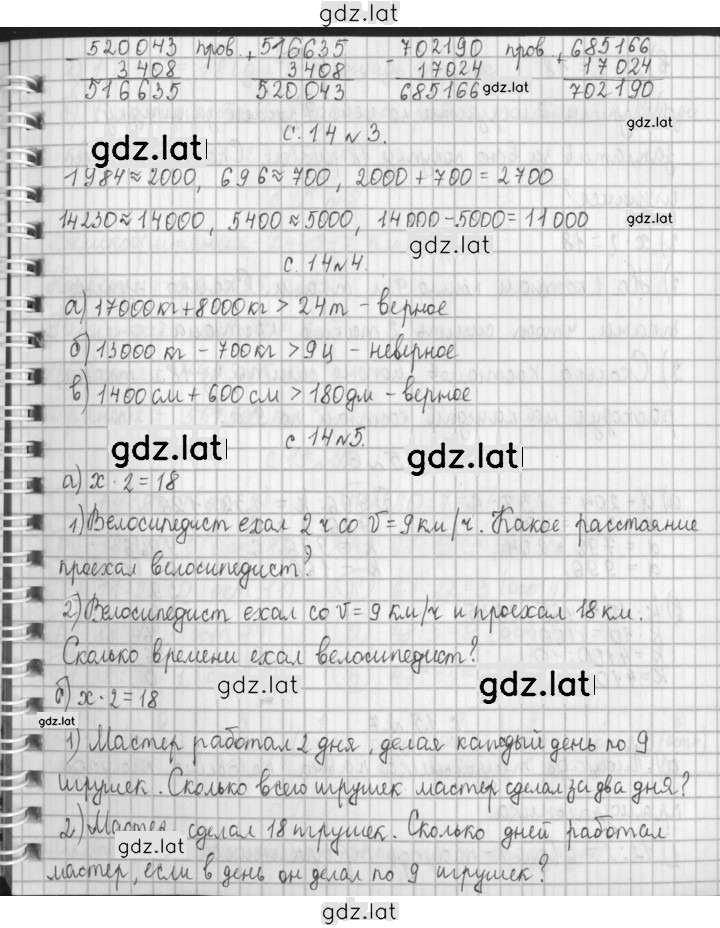 gdz.lat
520043 пров. 516635 702190 пров. 685166
- 3408 + 3408 - 17024 + 17024
516635 520043 685166 gdz.lat 702190
с. 14 N 3. gdz.lat
gdz.lat
1984≈2000, 696≈700, 2000+700=2700
14230≈14000, 5400≈5000, 14000-5000=11000 gdz.lat
gdz.lat
с. 14 N 4.
а) 17000 кг + 8000 кг > 24 т - верное
б) 13000 кг - 700 кг > 9 ц - неверное
в) 1400 см + 600 см > 180 дм - верное
с 14 N 5.
gdz.lat gdz.lat
а) x · 2 = 18
1) Велосипедист ехал 2 ч со v = 9 км/ч. Какое расстаяние
проехал велосипедист?
2) Велосипедист ехал со v = 9 км/ч и проехал 18 км.
Сколько времени ехал велосипедист?
gdz.lat gdz.lat
б) x · 2 = 18
gdz.lat
1) Мастер работал 2 дня, делая каждый день по 9
игрушек. Сколько всего игрушек мастер сделал за два дня?
2) Мастер сделал 18 игрушек. Сколько дней работал
gdz.lat
мастер, если в день он делал по 9 игрушек?
gdz.lat